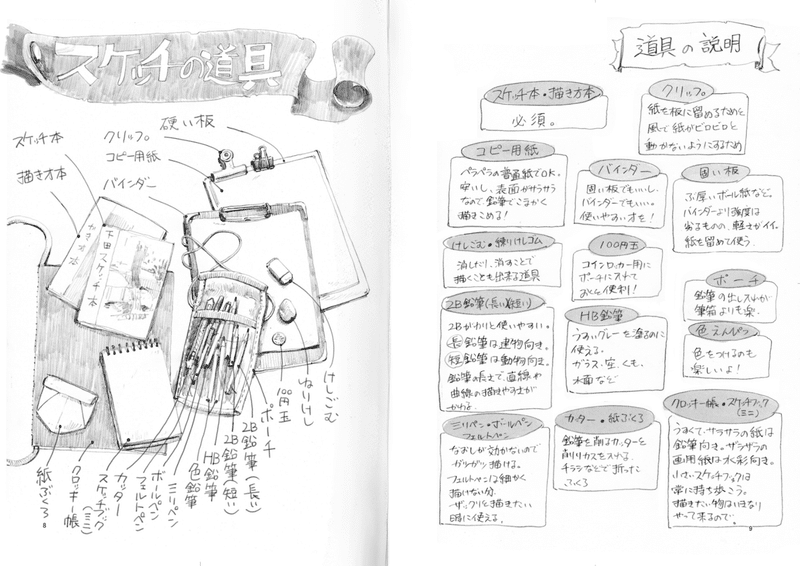 スケッチの道具
硬い板
クリップ
コピー用紙
バインダー
スケッチ本
描き方本
かき方本
下田スケッチ本
けしごむ
ねりけし
100円玉
ポーチ
2B鉛筆(長い)
2B鉛筆(短い)
HB鉛筆
色鉛筆
ミリペン
ボールペン
フェルトペン
カッター
スケッチブック
(ミニ)
クロッキー帳
紙ぶくろ
8
道具の説明
スケッチ本・描き方本
必須。
クリップ
紙を板に留めるためと
風で紙がピロピロと
動かないようにするため
コピー用紙
ペラペラの普通紙でOK。
安いし、表面がサラサラ
なので、鉛筆でこまかく
描きこめる!
バインダー
固い板でもいいし、
バインダーでもいい。
使いやすい方を!
固い板
ぶ厚いボール紙など。
バインダーより強度は
劣るものの、軽さがイイ。
紙を留めて使う。
けしごむ・練りけしゴム
消したり、消すことで
描くことも出来る道具
100円玉
コインロッカー用に
ポーチに入れて
おくと便利!
ポーチ
鉛筆の出し入れが
筆箱よりも楽。
2B鉛筆(長い)(短い)
2Bがわりと使いやすい。
長鉛筆は建物向き。
短鉛筆は動物向き。
鉛筆の長さで、直線や
曲線の描きやすさが
かわる。
HB鉛筆
うすいグレーを塗るのに
使える。
ガラス・空、くも、
水面など
色えんぴつ
色をつけるのも
楽しいよ!
ミリペン・ボールペン
フェルトペン
なおしが効かないので
ガシガシ描ける。
フェルトペンは細かく
描けない分、
ザックリと描きたい
時に使える。
カッター・紙ぶくろ
鉛筆を削るカッターと
削りカスを入れる、
チラシなどで折った
ふくろ
クロッキー帳・スケッチブック
(ミニ)
うすくて、サラサラの紙は
鉛筆向き。ザラザラの
画用紙は水彩向き。
小さいスケッチブックは
常に持ち歩こう。
描きたい物はいきなり
やって来るので。
9